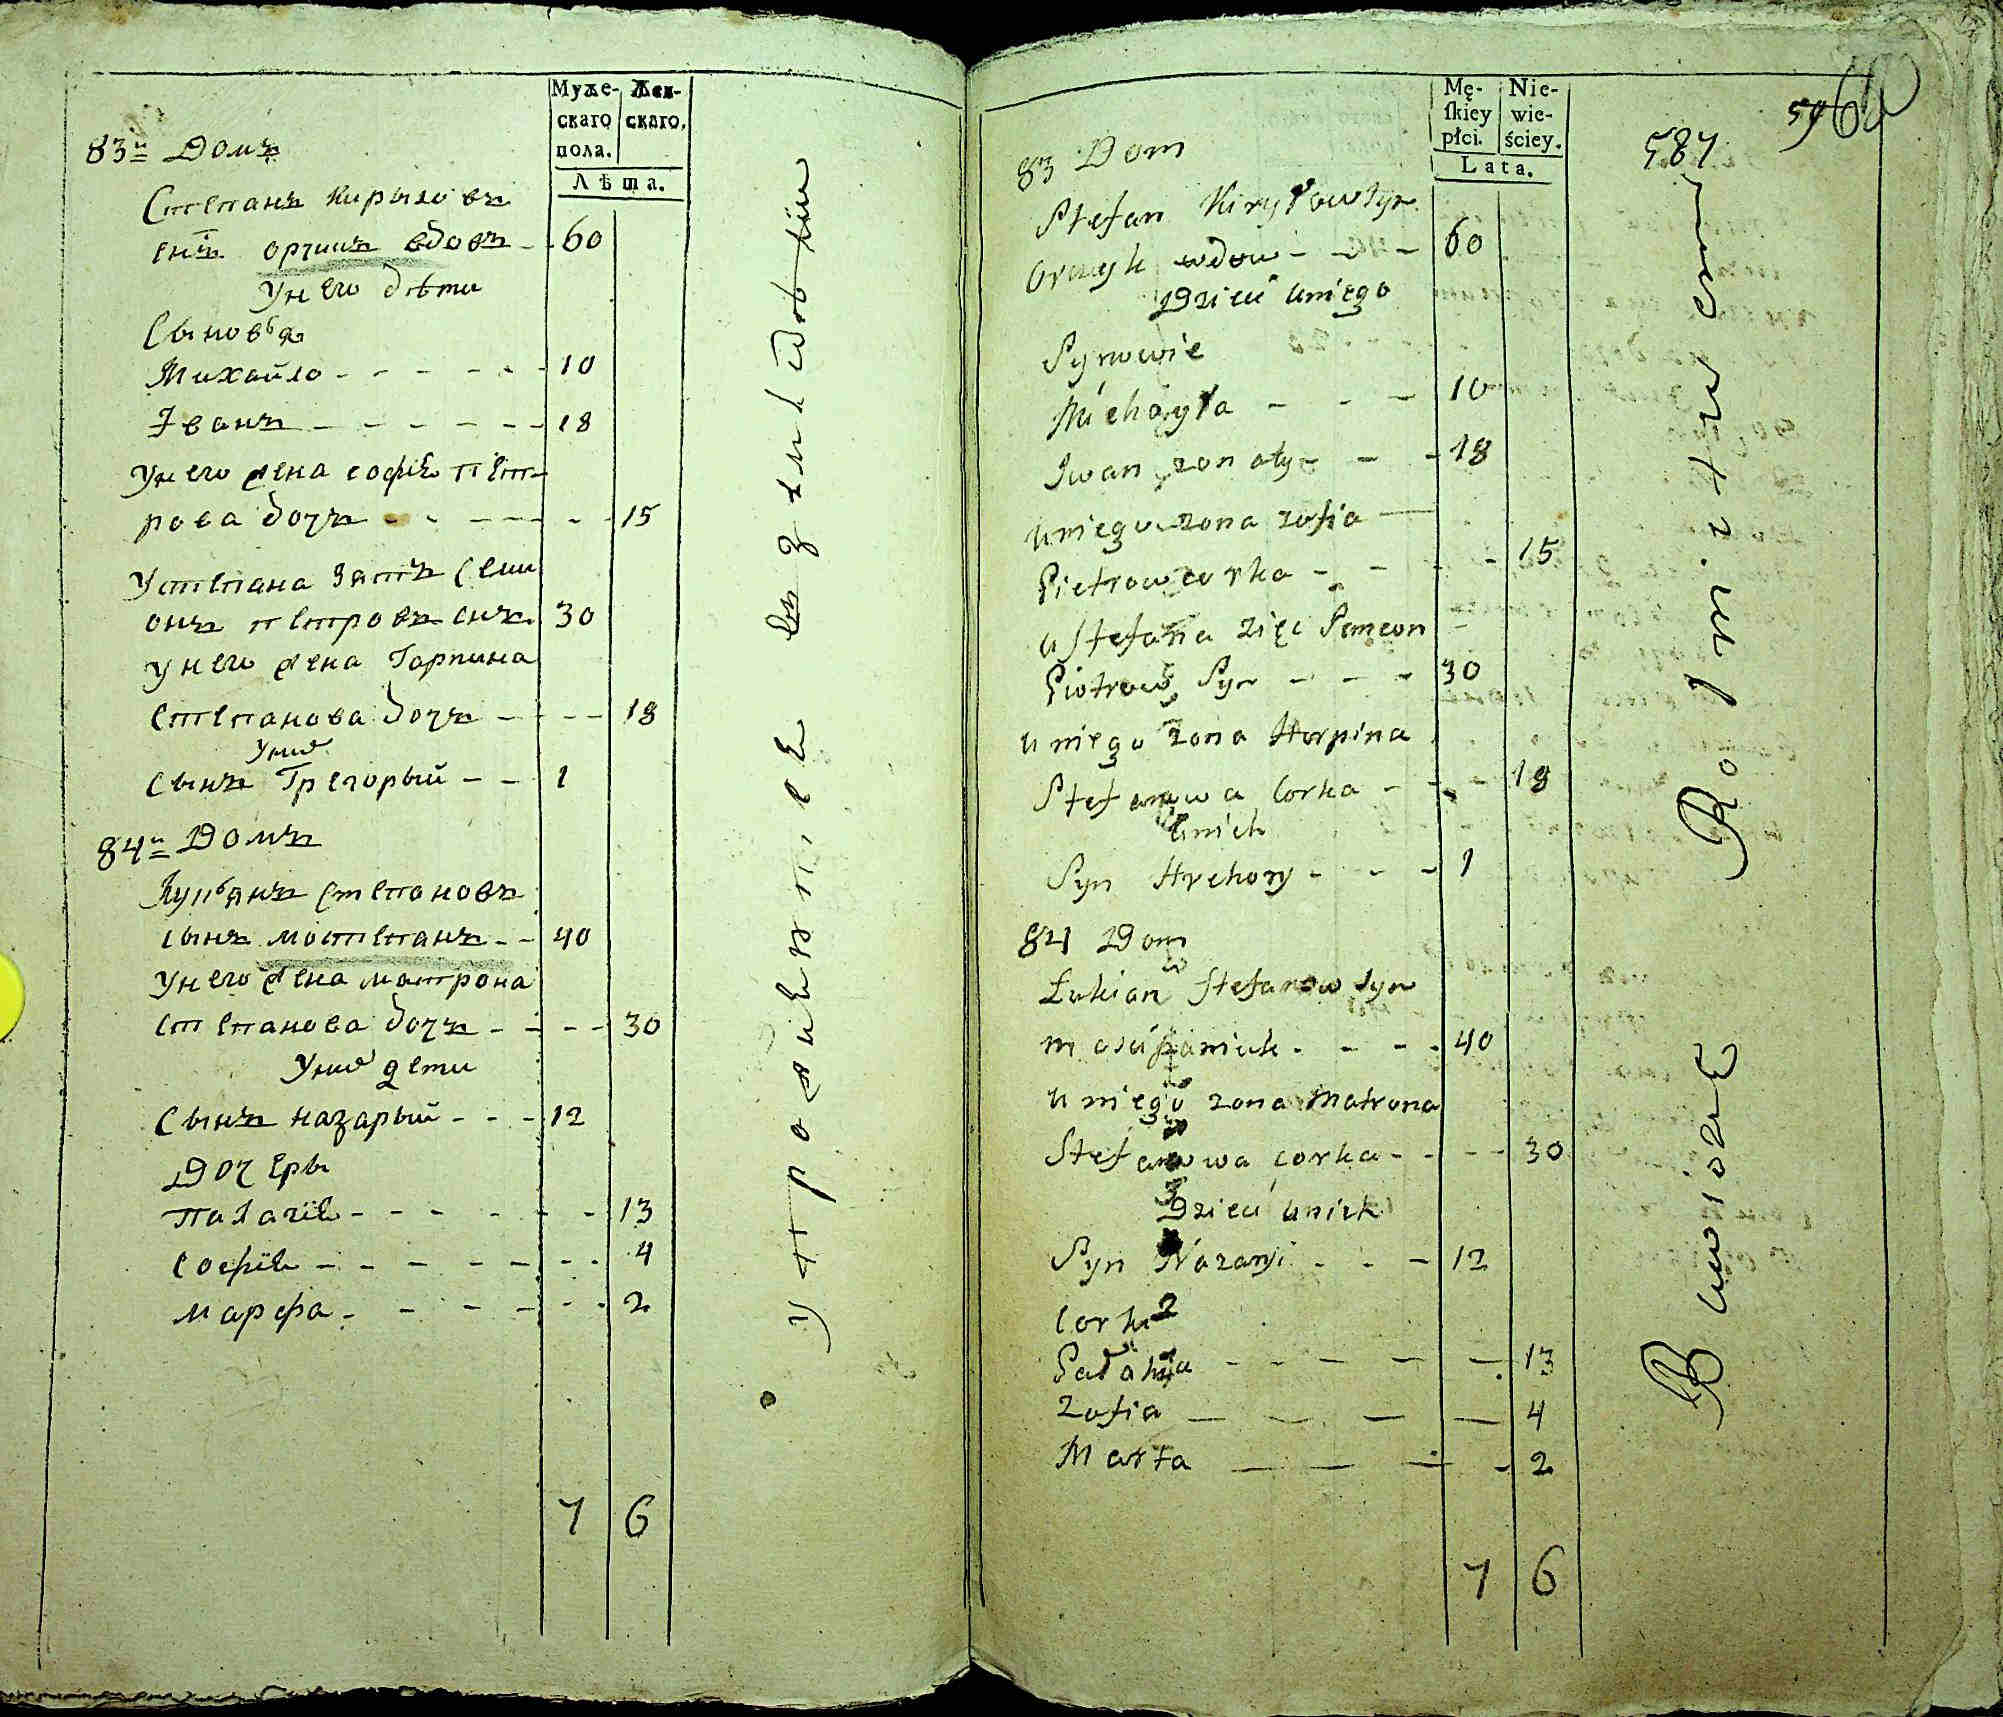 Муже-
скаго
пола.
Жен-
скаго.
Лѣта.
83й Домъ
Степанъ Кирыловъ
снъ орчикъ вдовъ 60
У него дѣти
Сыновья
Михайло 10
Іванъ 18
У него жена софія пет-
рова дочъ 15
У степана зятъ Семи
онъ петровъ снъ 30
У него жена Горпина
степанова дочъ 18
У них
сынъ Грегорый 1
84й Домъ
Лукьянъ степановъ
сынъ 40
У него жена матрона
степанова дочъ 30
У них дети
Сынъ назарый 12
Дочеры
Палагія 13
софія 4
марфа 2
7 6
Mę-
ſkiey
płci.
Nie-
wie-
ściey.
Lata.
587
83 Dom
Stefan Kiryłow Syn
wdow 60
Dzieci u niego
Synowie
Michayła 10
Iwan zonaty 18
u niego zona zofia
Pietrow corka 15
u Stefana zięć Semeon
Piotrow Syn 30
u niego zona Horpina
Stefanowa Corka 18
u nich
Syn Hrehory 1
84 Dom
Łukian Stefanow Syn
40
u niego zona Matrona
Stefanowa corka 30
Dzieci u nich
Syn Nazaryi 12
Corki
Pałahia 13
Zofia 4
Marta 2
7 6